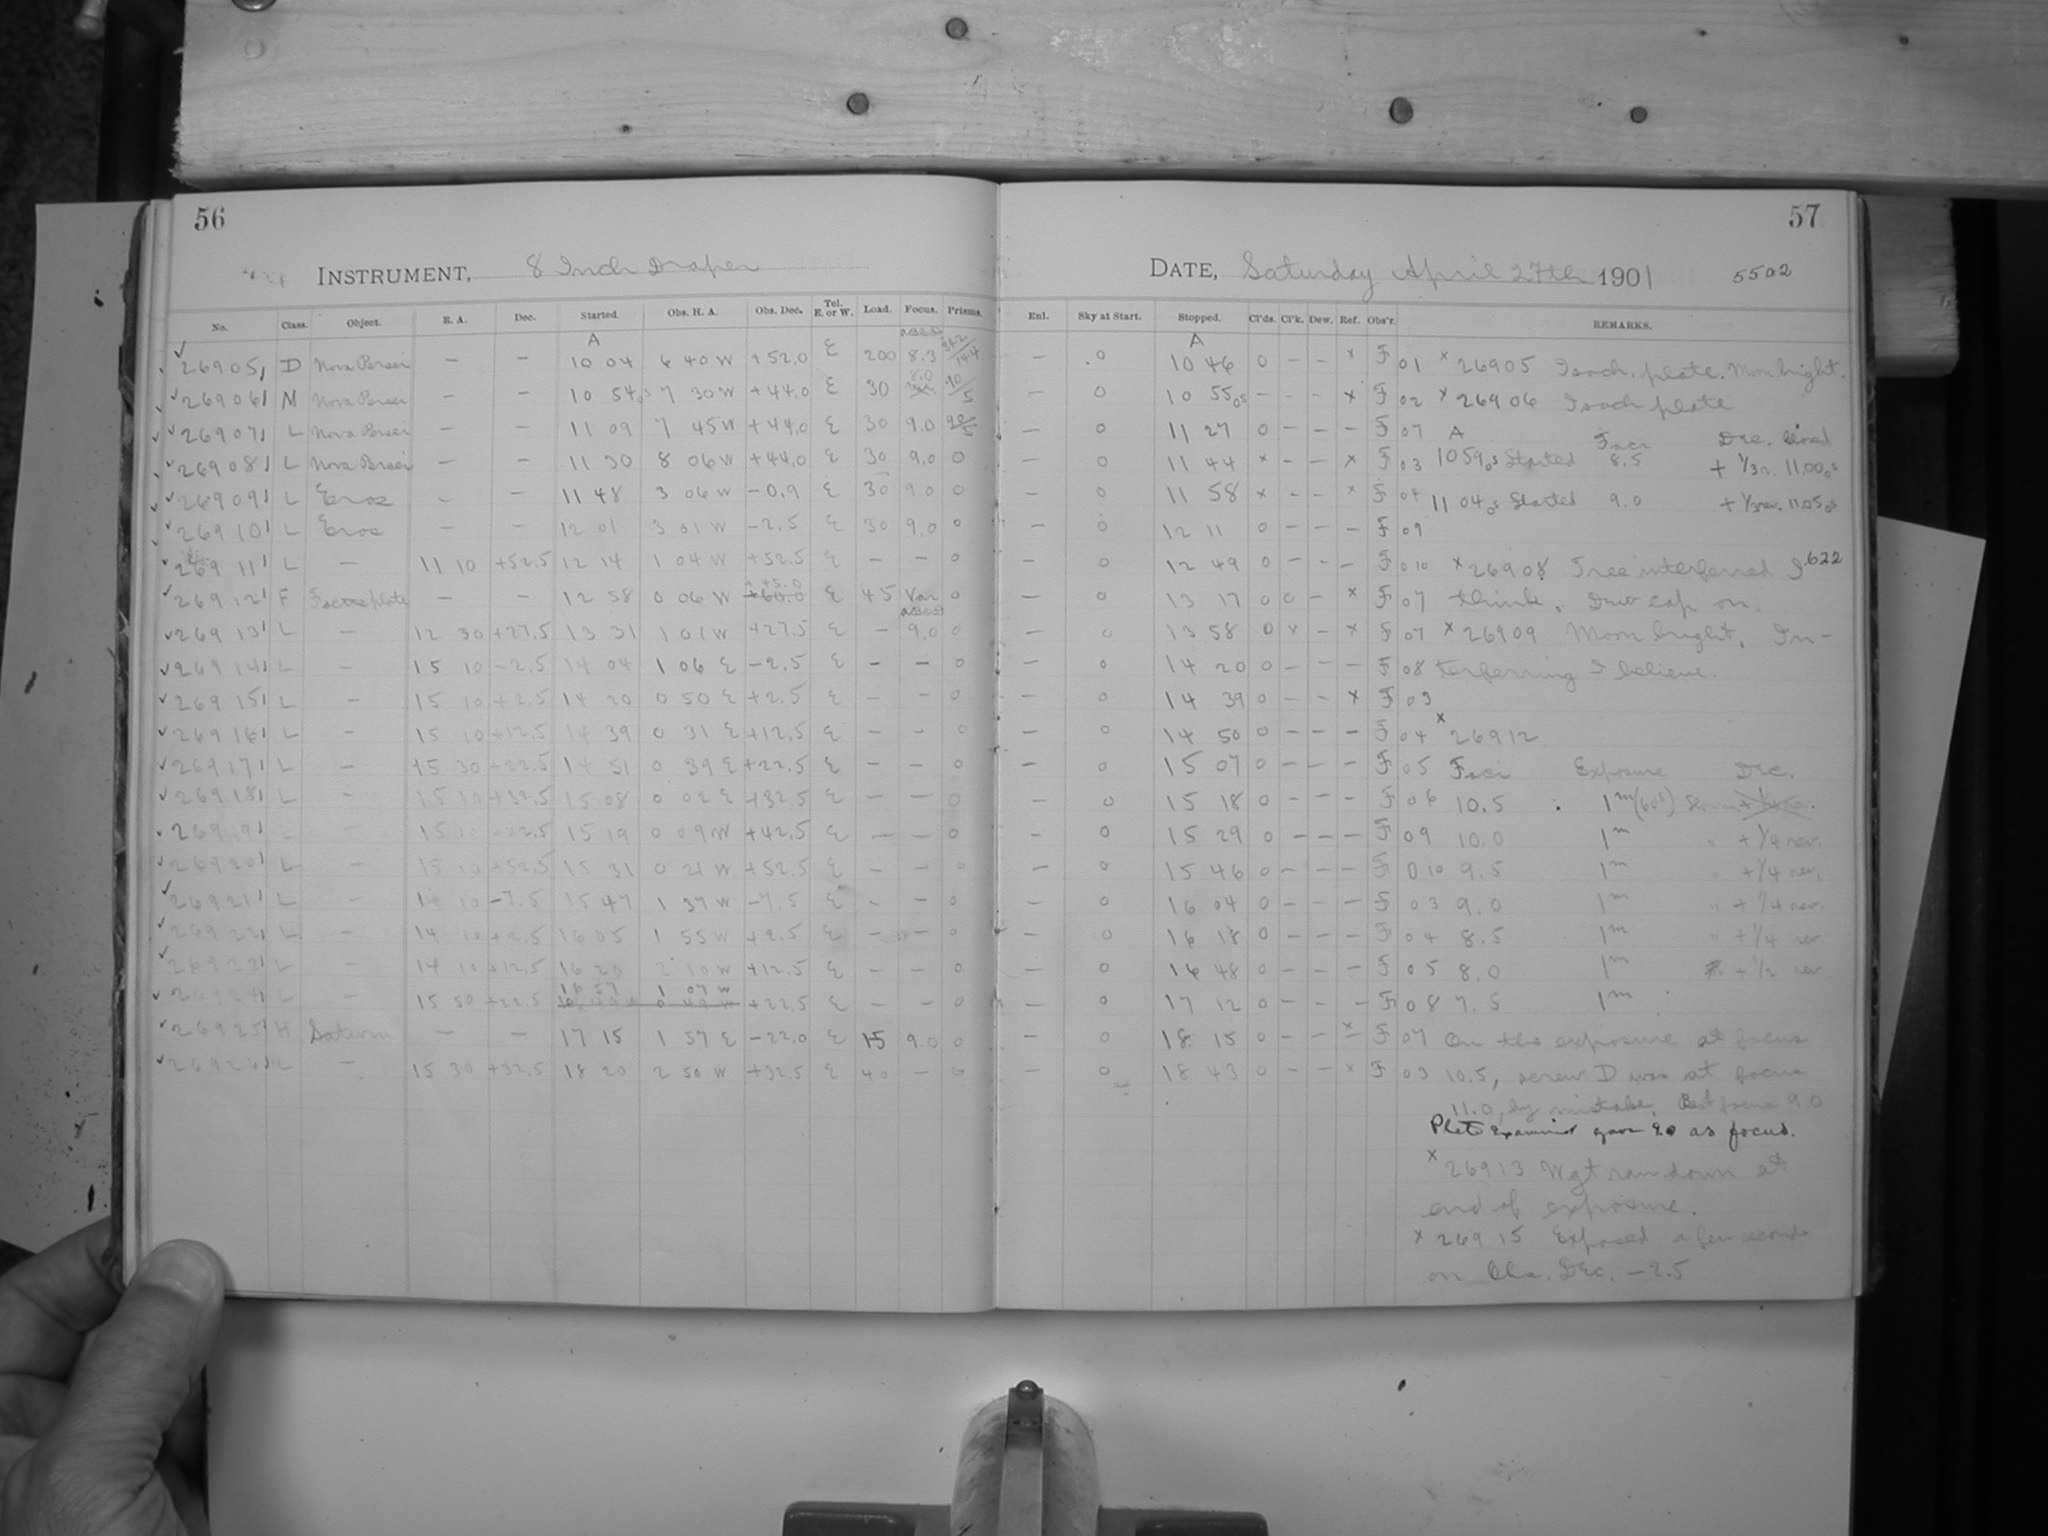 56
INSTRUMENT, 8 Inch Draper
No. Class. Object. R. A. Dec. Started. Obs. H. A. Obs. Dec. Tel. E. or W. Load. Focus. Prisms.
26905 D Nova Persei — — A 10 04 6 40 W +52.0 E 200 8.3
26906 M Nova Persei — — 10 54 0s 7 30 W +44.0 E 30 8.0 90/5
26907 L Nova Persei — — 11 09 7 45 W +44.0 E 30 9.0 90/5
26908 L Nova Persei — — 11 30 8 06 W +44.0 E 30 9.0 0
26909 L Eros — — 11 48 3 06 W −0.9 E 30 9.0 0
26910 L Eros — — 12 01 3 01 W −2.5 E 30 9.0 0
26911 L — 11 10 +52.5 12 14 1 04 W +52.5 E — — 0
26912 F Focus plate — — 12 58 0 06 W +5.0 E 45 Var 0
26913 L — 12 30 +27.5 13 31 1 01 W +27.5 E — 9.0 0
26914 L — 15 10 −2.5 14 04 1 06 E −2.5 E — — 0
26915 L — 15 10 +2.5 14 20 0 50 E +2.5 E — — 0
26916 L — 15 10 +12.5 14 39 0 31 E +12.5 E — — 0
26917 L — 15 30 +22.5 14 51 0 39 E +22.5 E — — 0
26918 L — 15 10 +32.5 15 08 0 02 E +32.5 E — — 0
26919 L — 15 10 +42.5 15 19 0 09 W +42.5 E — — 0
26920 L — 15 10 +52.5 15 31 0 21 W +52.5 E — — 0
26921 L — 14 10 −7.5 15 47 1 37 W −7.5 E — — 0
26922 L — 14 10 +2.5 16 05 1 55 W +2.5 E — — 0
26923 L — 14 10 +12.5 16 20 2 10 W +12.5 E — — 0
26924 L — 15 50 +22.5 16 57 1 07 W +22.5 E — — 0
26925 H Saturn — — 17 15 1 57 E −22.0 E 15 9.0 0
26926 L — 15 30 +32.5 18 20 2 50 W +32.5 E 40 — 0
57
DATE, Saturday April 27th 1901 5502
Enl. Sky at Start. Stopped. Cl'ds. Cl'k. Dew. Ref. Obs'r. REMARKS.
— 0 A 10 46 0 — — x F 01 x 26905 Isoch. plate. Moon bright.
— 0 10 55 0s — — — x F 02 x 26906 Isoch plate
— 0 11 27 0 — — — F 07 A Foci Dec. Closed
— 0 11 44 x — — x F 03 10 59 0s Started 8.5 + 1/3 r. 11.00 0s
— 0 11 58 x — — x F 04 11 04 0s Started 9.0 + 1/3 rev. 11.05 0s
— 0 12 11 0 — — — F 09
— 0 12 49 0 — — — F 010 x 26908 Tree interferred I .622
— 0 13 17 0 0 — x F 07 think. Dew cap on.
— 0 13 58 0 x — x F 07 x 26909 Moon bright. In-
— 0 14 20 0 — — — F 08 terferring I believe.
— 0 14 39 0 — — x F 03
— 0 14 50 0 — — — F 04 x 26912
— 0 15 07 0 — — — F 05 Foci Exposure Dec.
— 0 15 18 0 — — — F 06 10.5 1m (60s)
— 0 15 29 0 — — — F 09 10.0 1m " + 1/4 rev.
— 0 15 46 0 — — — F 010 9.5 1m " + 1/4 rev.
— 0 16 04 0 — — — F 03 9.0 1m " + 1/4 rev.
— 0 16 18 0 — — — F 04 8.5 1m " + 1/4 rev
— 0 16 48 0 — — — F 05 8.0 1m + 1/2 rev
— 0 17 12 0 — — — F 08 7.5 1m
— 0 18 15 0 — — x F 07 On the exposure at focus
— 0 18 43 0 — — x F 03 10.5, screw D was at focus
11.0, by mistake. Best focus 9.0
Plate Examiner gave as focus.
x 26913 Wgt ran down at
end of exposure.
x 26915 Exposed a few seconds
on Obs. Dec. −2.5